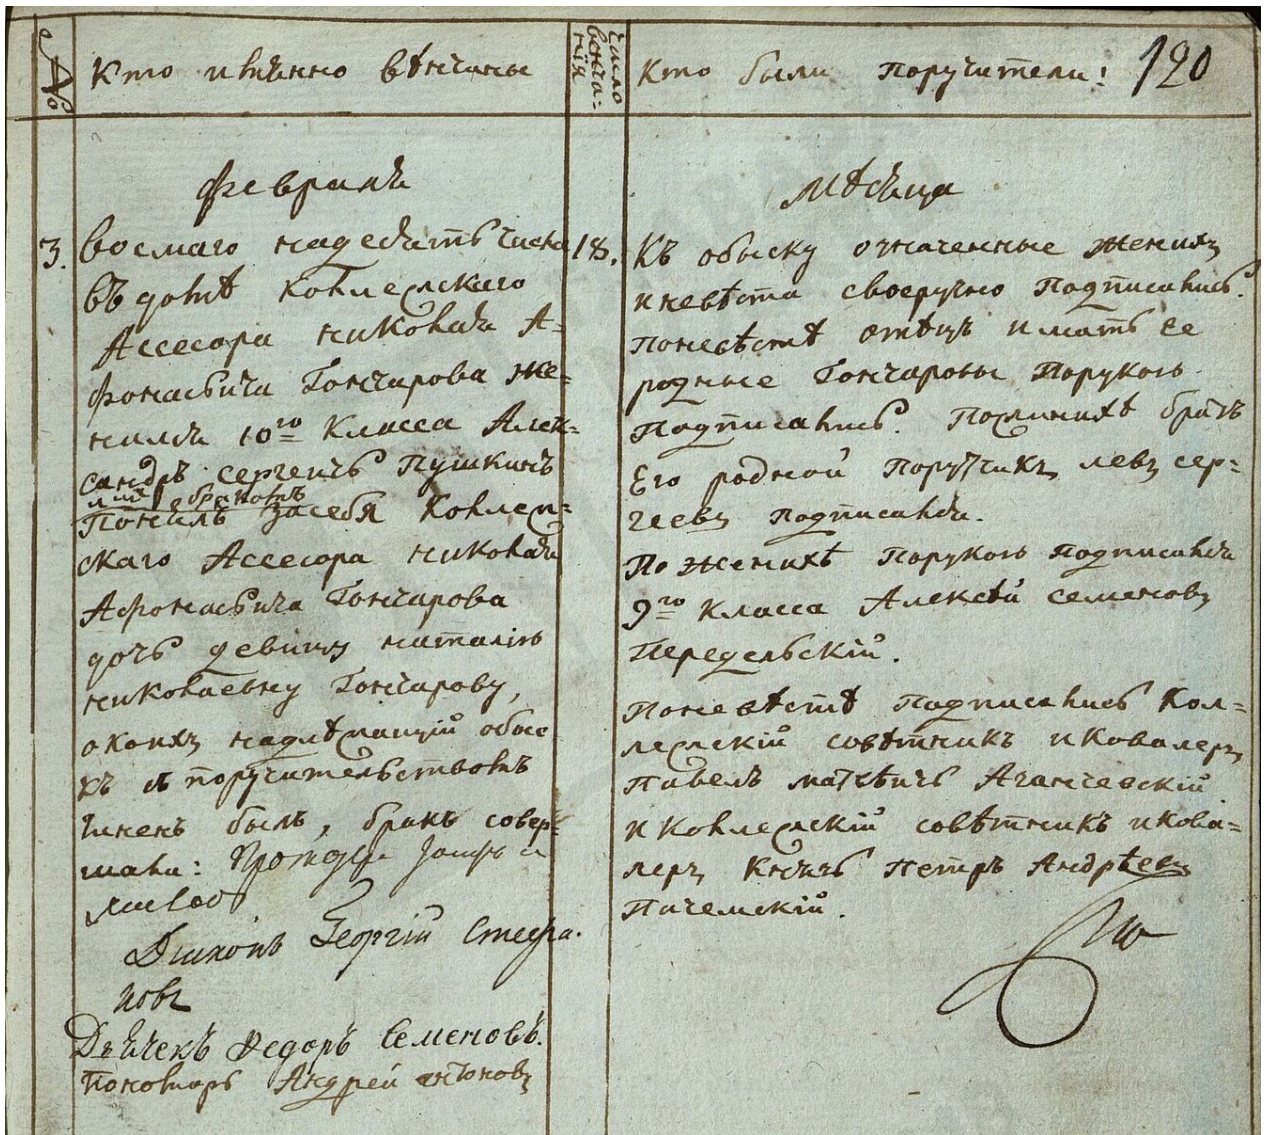 №
Кто имянно вѣнчаны
число
венча=
нія
Кто были поручители!
190
Февраля
Мѣсяца
3.
Восмаго надесять числа
въ домѣ Коллежскаго
Ассесора Николая А=
фонасьича Гончарова же=
нился 10го Класса Алек=
сандръ Сергеичь Пушкинъ
бракомъ
Понялъ засебя Коллеж=
скаго Ассесора Николая
Афонасьича Гончарова
дочь девицу Наталію
Николаевну Гончарову,
окоихъ надлѣжащій обыс
къ съ поручительствомъ
чиненъ былъ, бракъ совер=
шали: Протоіерей Іосифъ
Михайловъ
Дьяконъ Георгій Стефа.
новъ
Дьячекъ Федоръ Семеновъ.
Пономарь Андрей Антоновъ
18.
Къ обыску означенные женихъ
и невѣста своеручно подписались.
Поневѣстѣ отецъ и мать ее
родные Гончаровы порукою
подписались. Пожинихѣ братъ
Его родной Порутчикъ Левъ Сер=
геевъ подписался.
По женихѣ порукою подписался
9го Класса Алексѣй Семеновъ
Передельскій.
Поневѣстѣ подписались Кол=
лежскій совѣтникъ и ковалеръ
Павелъ Матвѣичь Азанчевскій
и Коллежскій совѣтникъ и кова=
леръ Князь Петръ Андрѣевъ